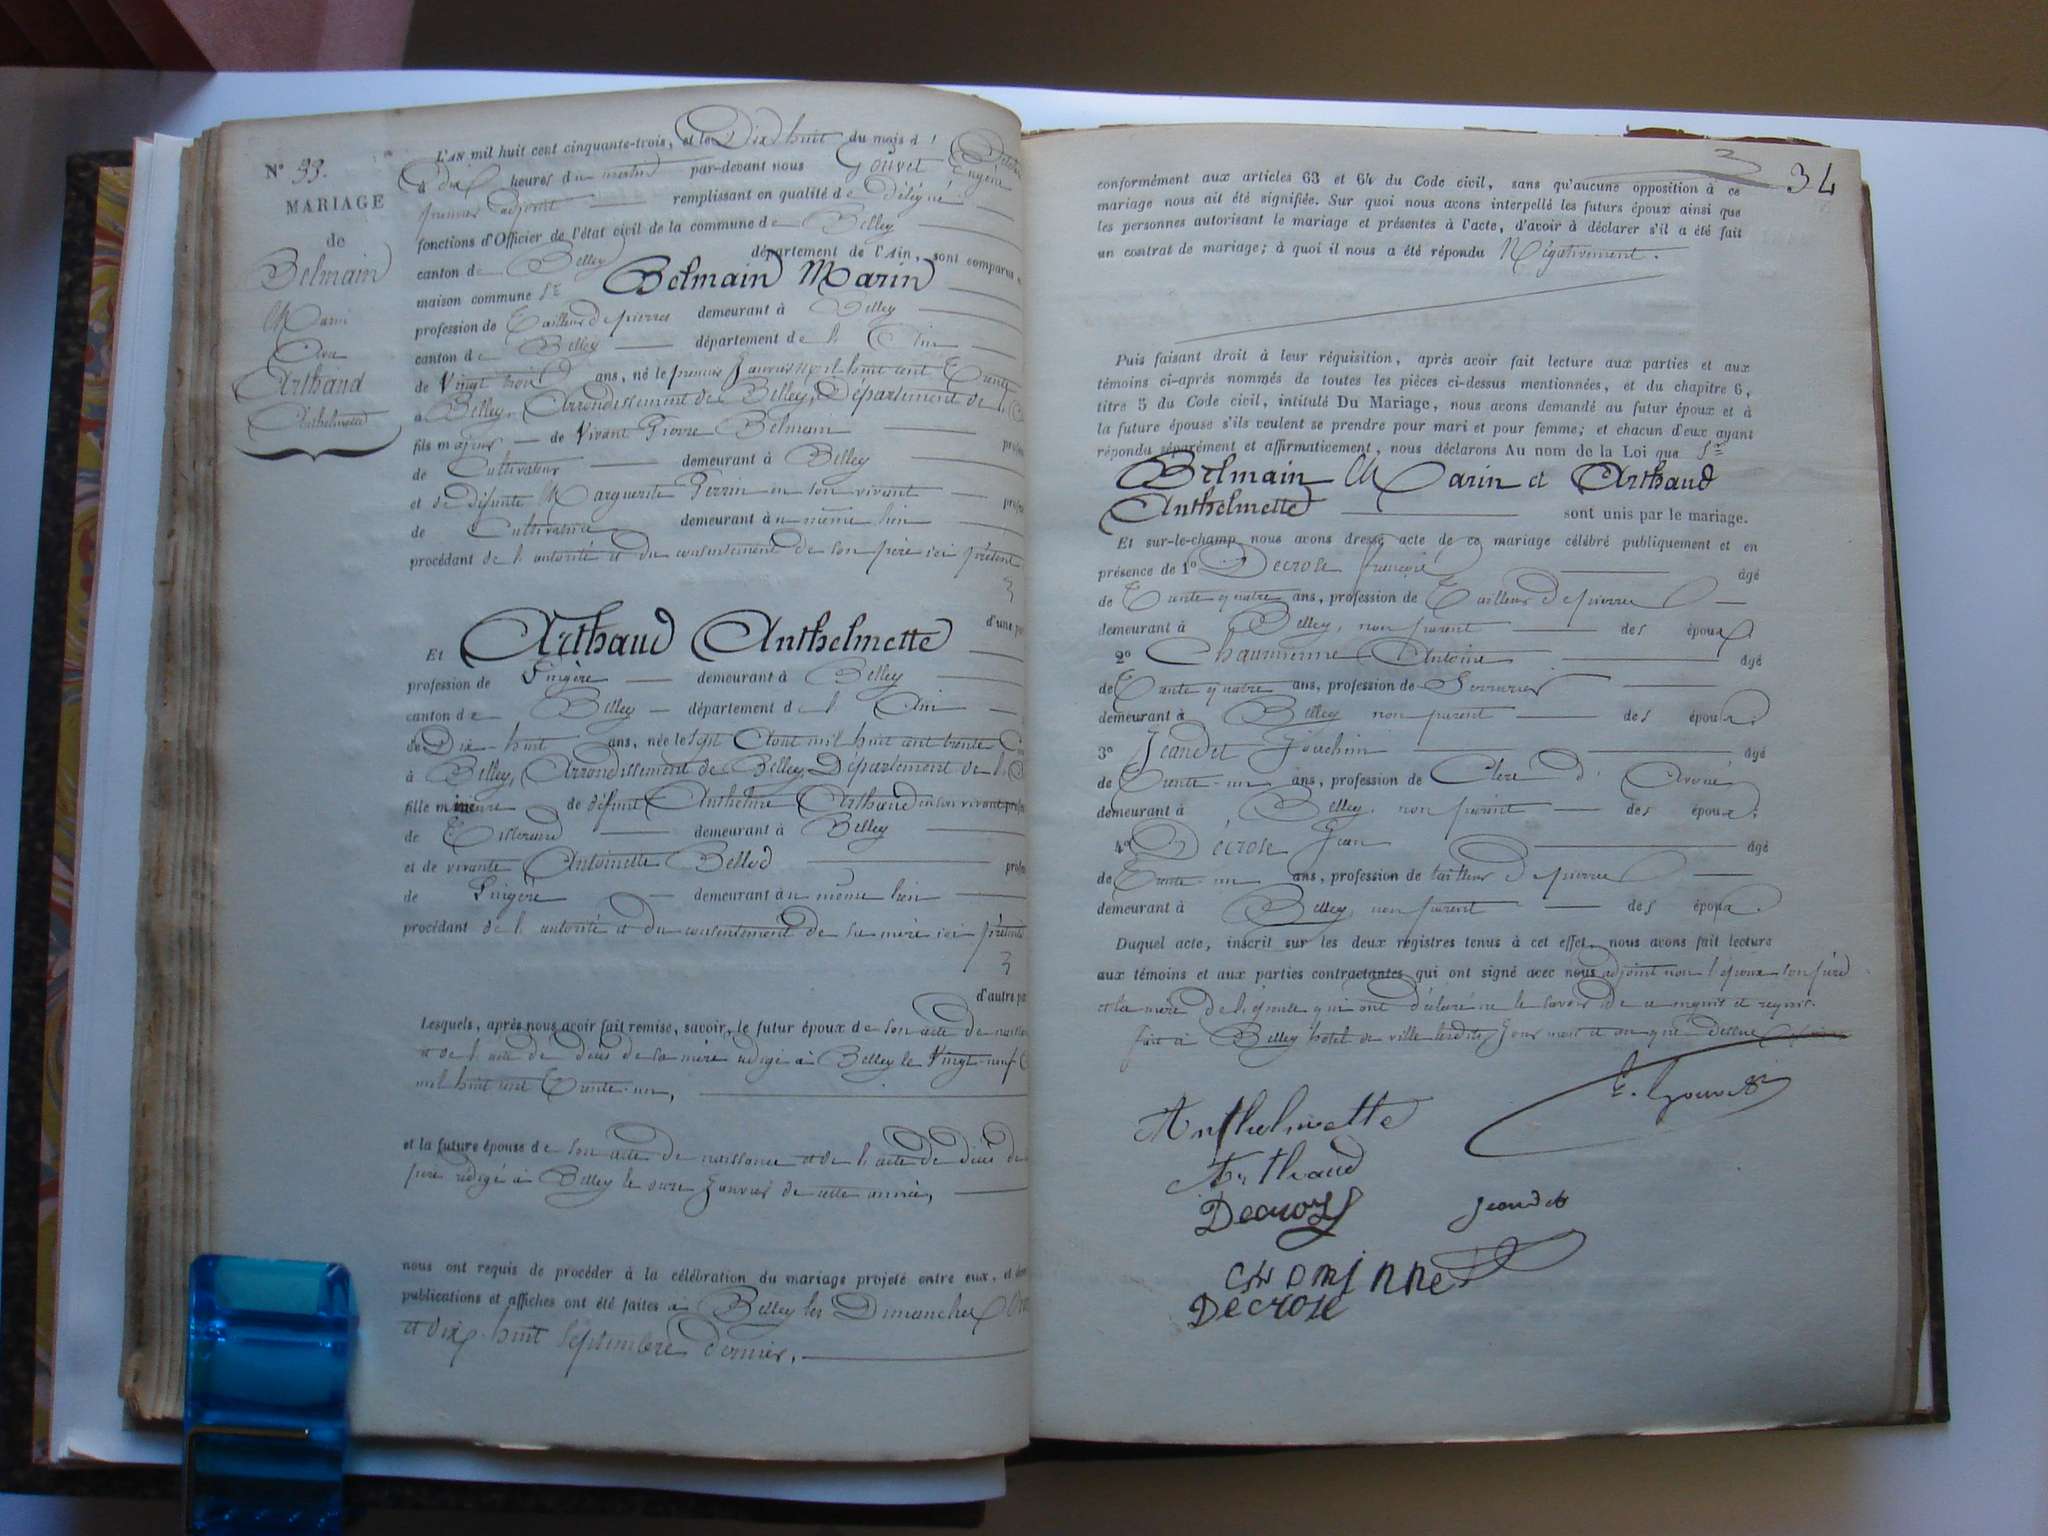 N° 33.
MARIAGE
de
Belmain
Marin
Avec
Arthaud
Anthelmette
L'AN mil huit cent cinquante-trois, et le Dix huit du mois d'
à dix heures du matin par-devant nous Gouvet Eugène
premier adjoint remplissant en qualité de Délégué
fonctions d'Officier de l'état civil de la commune de Belley
canton de Belley département de l'Ain, sont comparus
maison commune Sr Belmain Marin
profession de Tailleur de pierres demeurant à Belley
canton de Belley département de l'Ain
de Vingt trois ans, né le premier Janvier mil huit cent Trente
à Belley, Arrondissement de Belley, Département de l'
fils majeur de Vivant Pierre Belmain
de Cultivateur demeurant à Belley
et de défunte Marguerite Perrin en son vivant
de Cultivatrice demeurant au même lieu
procédant de l'autorité et du consentement de son père ici présent
d'une
Et Arthaud Anthelmette
profession de Lingère demeurant à Belley
canton de Belley département de l'Ain
de Dix-huit ans, née le sept Aout mil huit cent trente
à Belley, Arrondissement de Belley, Département de l'
fille mineure de défunt Anthelme Arthaud en son vivant
de Tisserand demeurant à Belley
et de vivante Antoinette Bellod
de Lingère demeurant au même lieu
procédant de l'autorité et du consentement de sa mère ici présente
d'autre
Lesquels, après nous avoir fait remise, savoir, le futur époux de son acte de
et de l'acte de décès de sa mère rédigé à Belley le Vingt-neuf
mil huit cent Trente-un,
et la future épouse de son acte de naissance et de l'acte de décès de
père rédigé à Belley le onze Janvier de cette année,
nous ont requis de procéder à la célébration du mariage projeté entre eux, et
publications et affiches ont été faites à Belley les Dimanches
et dix-huit Septembre dernier,
34
conformément aux articles 63 et 64 du Code civil, sans qu'aucune opposition à ce
mariage nous ait été signifiée. Sur quoi nous avons interpellé les futurs époux ainsi que
les personnes autorisant le mariage et présentes à l'acte, d'avoir à déclarer s'il a été fait
un contrat de mariage; à quoi il nous a été répondu Négativement.
Puis faisant droit à leur réquisition, après avoir fait lecture aux parties et aux
témoins ci-après nommés de toutes les pièces ci-dessus mentionnées, et du chapitre 6,
titre 5 du Code civil, intitulé Du Mariage, nous avons demandé au futur époux et à
la future épouse s'ils veulent se prendre pour mari et pour femme; et chacun d'eux ayant
répondu séparément et affirmativement, nous déclarons Au nom de la Loi que Sr
Belmain Marin et Arthaud
Anthelmette sont unis par le mariage.
Et sur-le-champ nous avons dressé acte de ce mariage célébré publiquement et en
présence de 1° Decrose françois âgé
de Trente quatre ans, profession de Tailleur de pierres
demeurant à Belley, non parent des époux.
2° Chaumienne Antoine âgé
de Trente quatre ans, profession de Serrurier
demeurant à Belley non parent des époux.
3° Jeandet Joachim âgé
de Trente-un ans, profession de Clerc d'Avoué
demeurant à Belley, non parent des époux.
4° Décrose Jean âgé
de Trente-un ans, profession de tailleur de pierres
demeurant à Belley, non parent des époux.
Duquel acte, inscrit sur les deux registres tenus à cet effet, nous avons fait lecture
aux témoins et aux parties contractantes qui ont signé avec nous adjoint non l'époux son père
et la mère de l'épouse qui ont déclaré ne le savoir de ce enquis et requis.
fait à Belley hôtel de ville lesdits Jour mois et an que dessus
E. Gouvet
Anthelmette
Arthaud
Decrose
Jeandet
CHOMIENNE
DECROSE